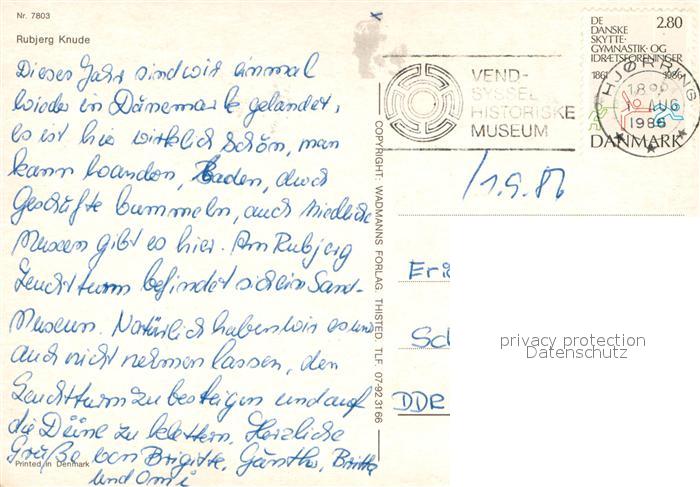 Nr. 7803
Rubjerg Knude
Dieses Jahr sind wir einmal
wieder in Dänemark gelandet,
es ist hier wirklich schön, man
kann wandern, Baden, durch
Geschäfte bummeln, auch niedliche
Museen gibt es hier. Am Rubjerg
Leuchtturm befindet sich ein Sand-
Museum. Natürlich haben wir es uns
auch nicht nehmen lassen, den
Leuchtturm zu besteigen und auf
die Düne zu klettern. Herzliche
Grüße von Brigitte, Günther, Britta
und Omi
Printed in Denmark
COPYRIGHT: WADMANNS FORLAG, THISTED. TLF. 07-92 3166
VEND-
SYSSEL
HISTORISKE
MUSEUM
DE 2.80
DANSKE
SKYTTE-
GYMNASTIK-OG
IDRÆTSFORENINGER
1861 1986
HJØRRING
AUG
1986
DANMARK
Eri
Sch
DDR
privacy protection
Datenschutz